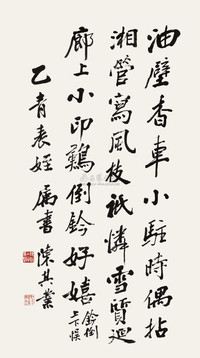 油壁香車小駐時偶拈
湘管寫風枝祇憐雪質迎
廊上小印鷄倒鈐好嬉
鈐倒
上卞悞
乙青表姪属書陳其業